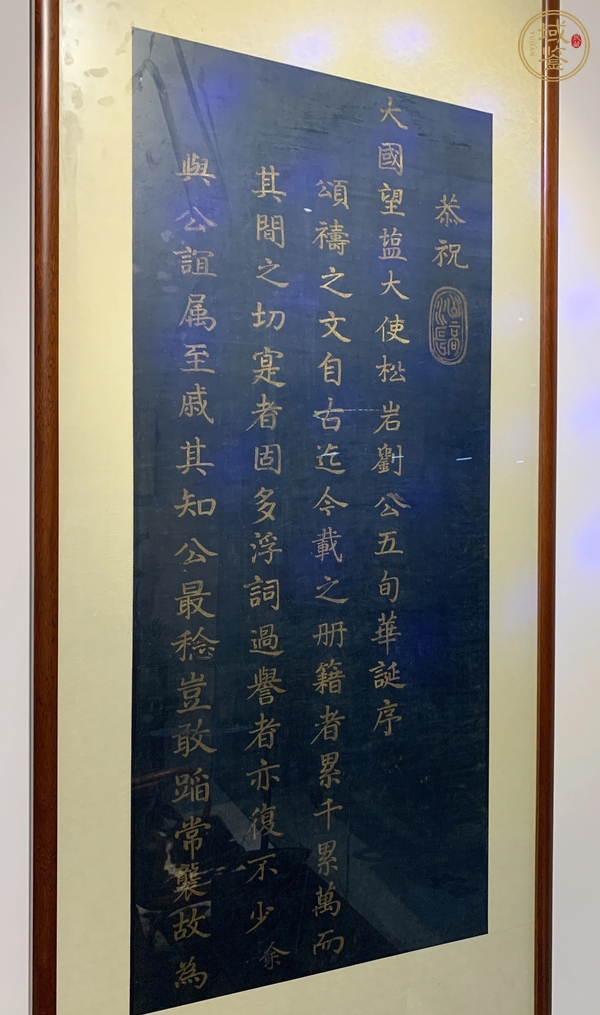 恭祝
大國望盐大使松岩劉公五旬華誕序
頌禱之文自古迄今載之册籍者累千累萬而
其間之切寔者固多浮詞過譽者亦復不少余
與公誼属至戚其知公最稔豈敢蹈常襲故為
域鉴